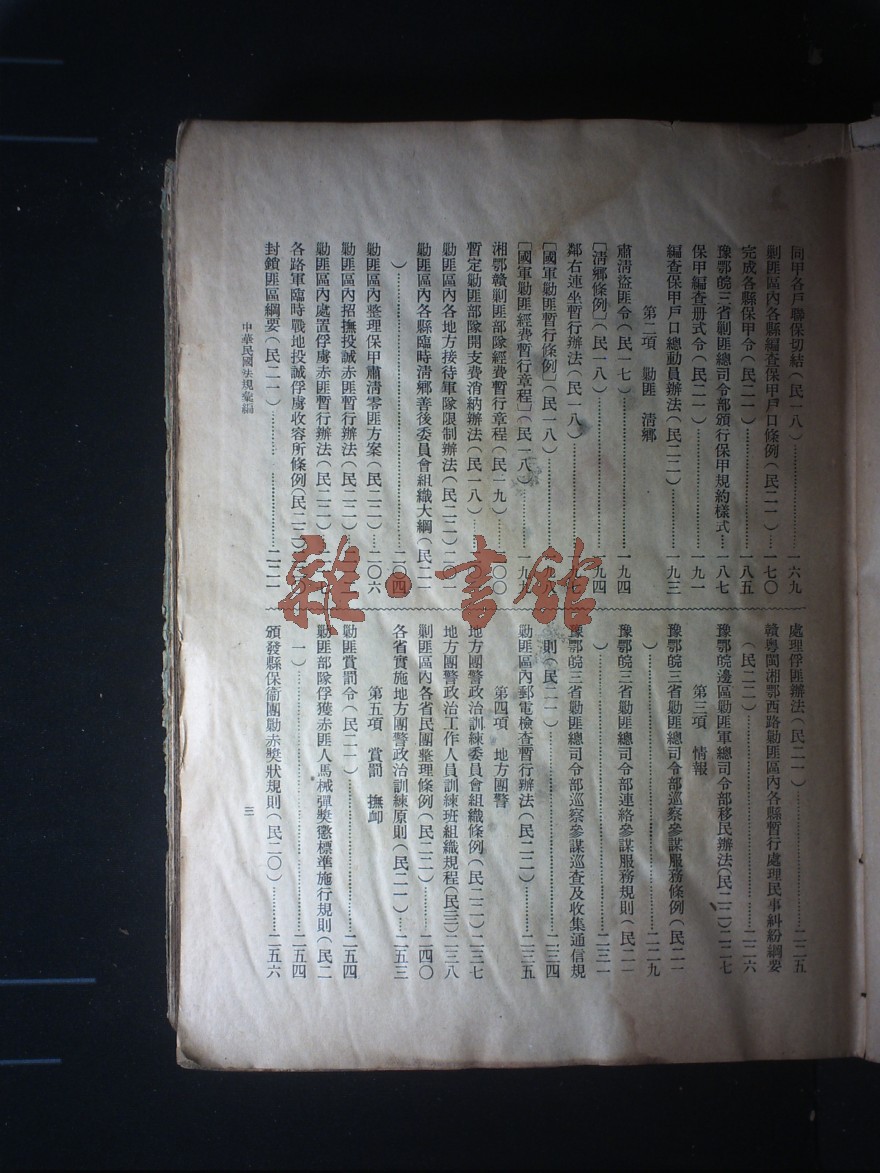 同甲各戶聯保切結(民一八)……一六九
剿匪區內各縣編查保甲戶口條例(民二一)……一七〇
完成各縣保甲令(民二一)……一八五
豫鄂皖三省剿匪總司令部頒行保甲規約樣式…一八七
保甲編查册式令(民二一)……一九一
編查保甲戶口總動員辦法(民二二)……一九三
第二項 勦匪 清鄉
肅清盜匪令(民一七)……一九四
[清鄉條例](民一八)……一九四
鄰右連坐暫行辦法(民一八)……
[國軍勦匪暫行條例](民一八)……
[國軍勦匪經費暫行章程](民一八)……一九
湘鄂贛剿匪部隊經費暫行章程(民一九)……〇〇
暫定勦匪部隊開支費消納辦法(民一八)……
勦匪區內各地方接待軍隊限制辦法(民二二)
勦匪區內各縣臨時淸鄉善後委員會組織大綱(民二一
)……二〇四
勦匪區內整理保甲肅清零匪方案(民二二)……二〇六
勦匪區內招撫投誠赤匪暫行辦法(民二二)……
勦匪區內處置俘虜赤匪暫行辦法(民二二)……
各路軍臨時戰地投誠俘虜收容所條例(民二二)
封鎖匪區綱要(民二一)……二二一
處理俘匪辦法(民二一)……二二五
贛粵閩湘鄂西路勦匪區內各縣暫行處理民事糾紛綱要
(民二二)……二二六
豫鄂皖邊區勦匪軍總司令部移民辦法(民二二)二二七
第三項 情報
豫鄂皖三省勦匪總司令部巡察參謀服務條例(民二一
)……二二九
豫鄂皖三省勦匪總司令部連絡參謀服務規則(民二一
)……二三一
豫鄂皖三省勦匪總司令部巡察參謀巡查及收集通信規
則(民二一)……二三四
勦匪區內郵電檢查暫行辦法(民二二)……二三五
第四項 地方團警
地方團警政治訓練委員會組織條例(民二二)二三七
地方團警政治工作人員訓練班組織規程(民三)二三八
剿匪區內各省民團整理條例(民二二)……二四〇
各省實施地方團警政治訓練原則(民二一)…二五三
第五項 賞罰 撫卹
勦匪賞罰令(民二一)……二五四
勦匪部隊俘獲赤匪人馬械彈獎懲標準施行規則(民二
一)……二五四
頒發縣保衞團勦赤獎狀規則(民二〇)……二五六
中華民國法規彙編
三
雜·書館